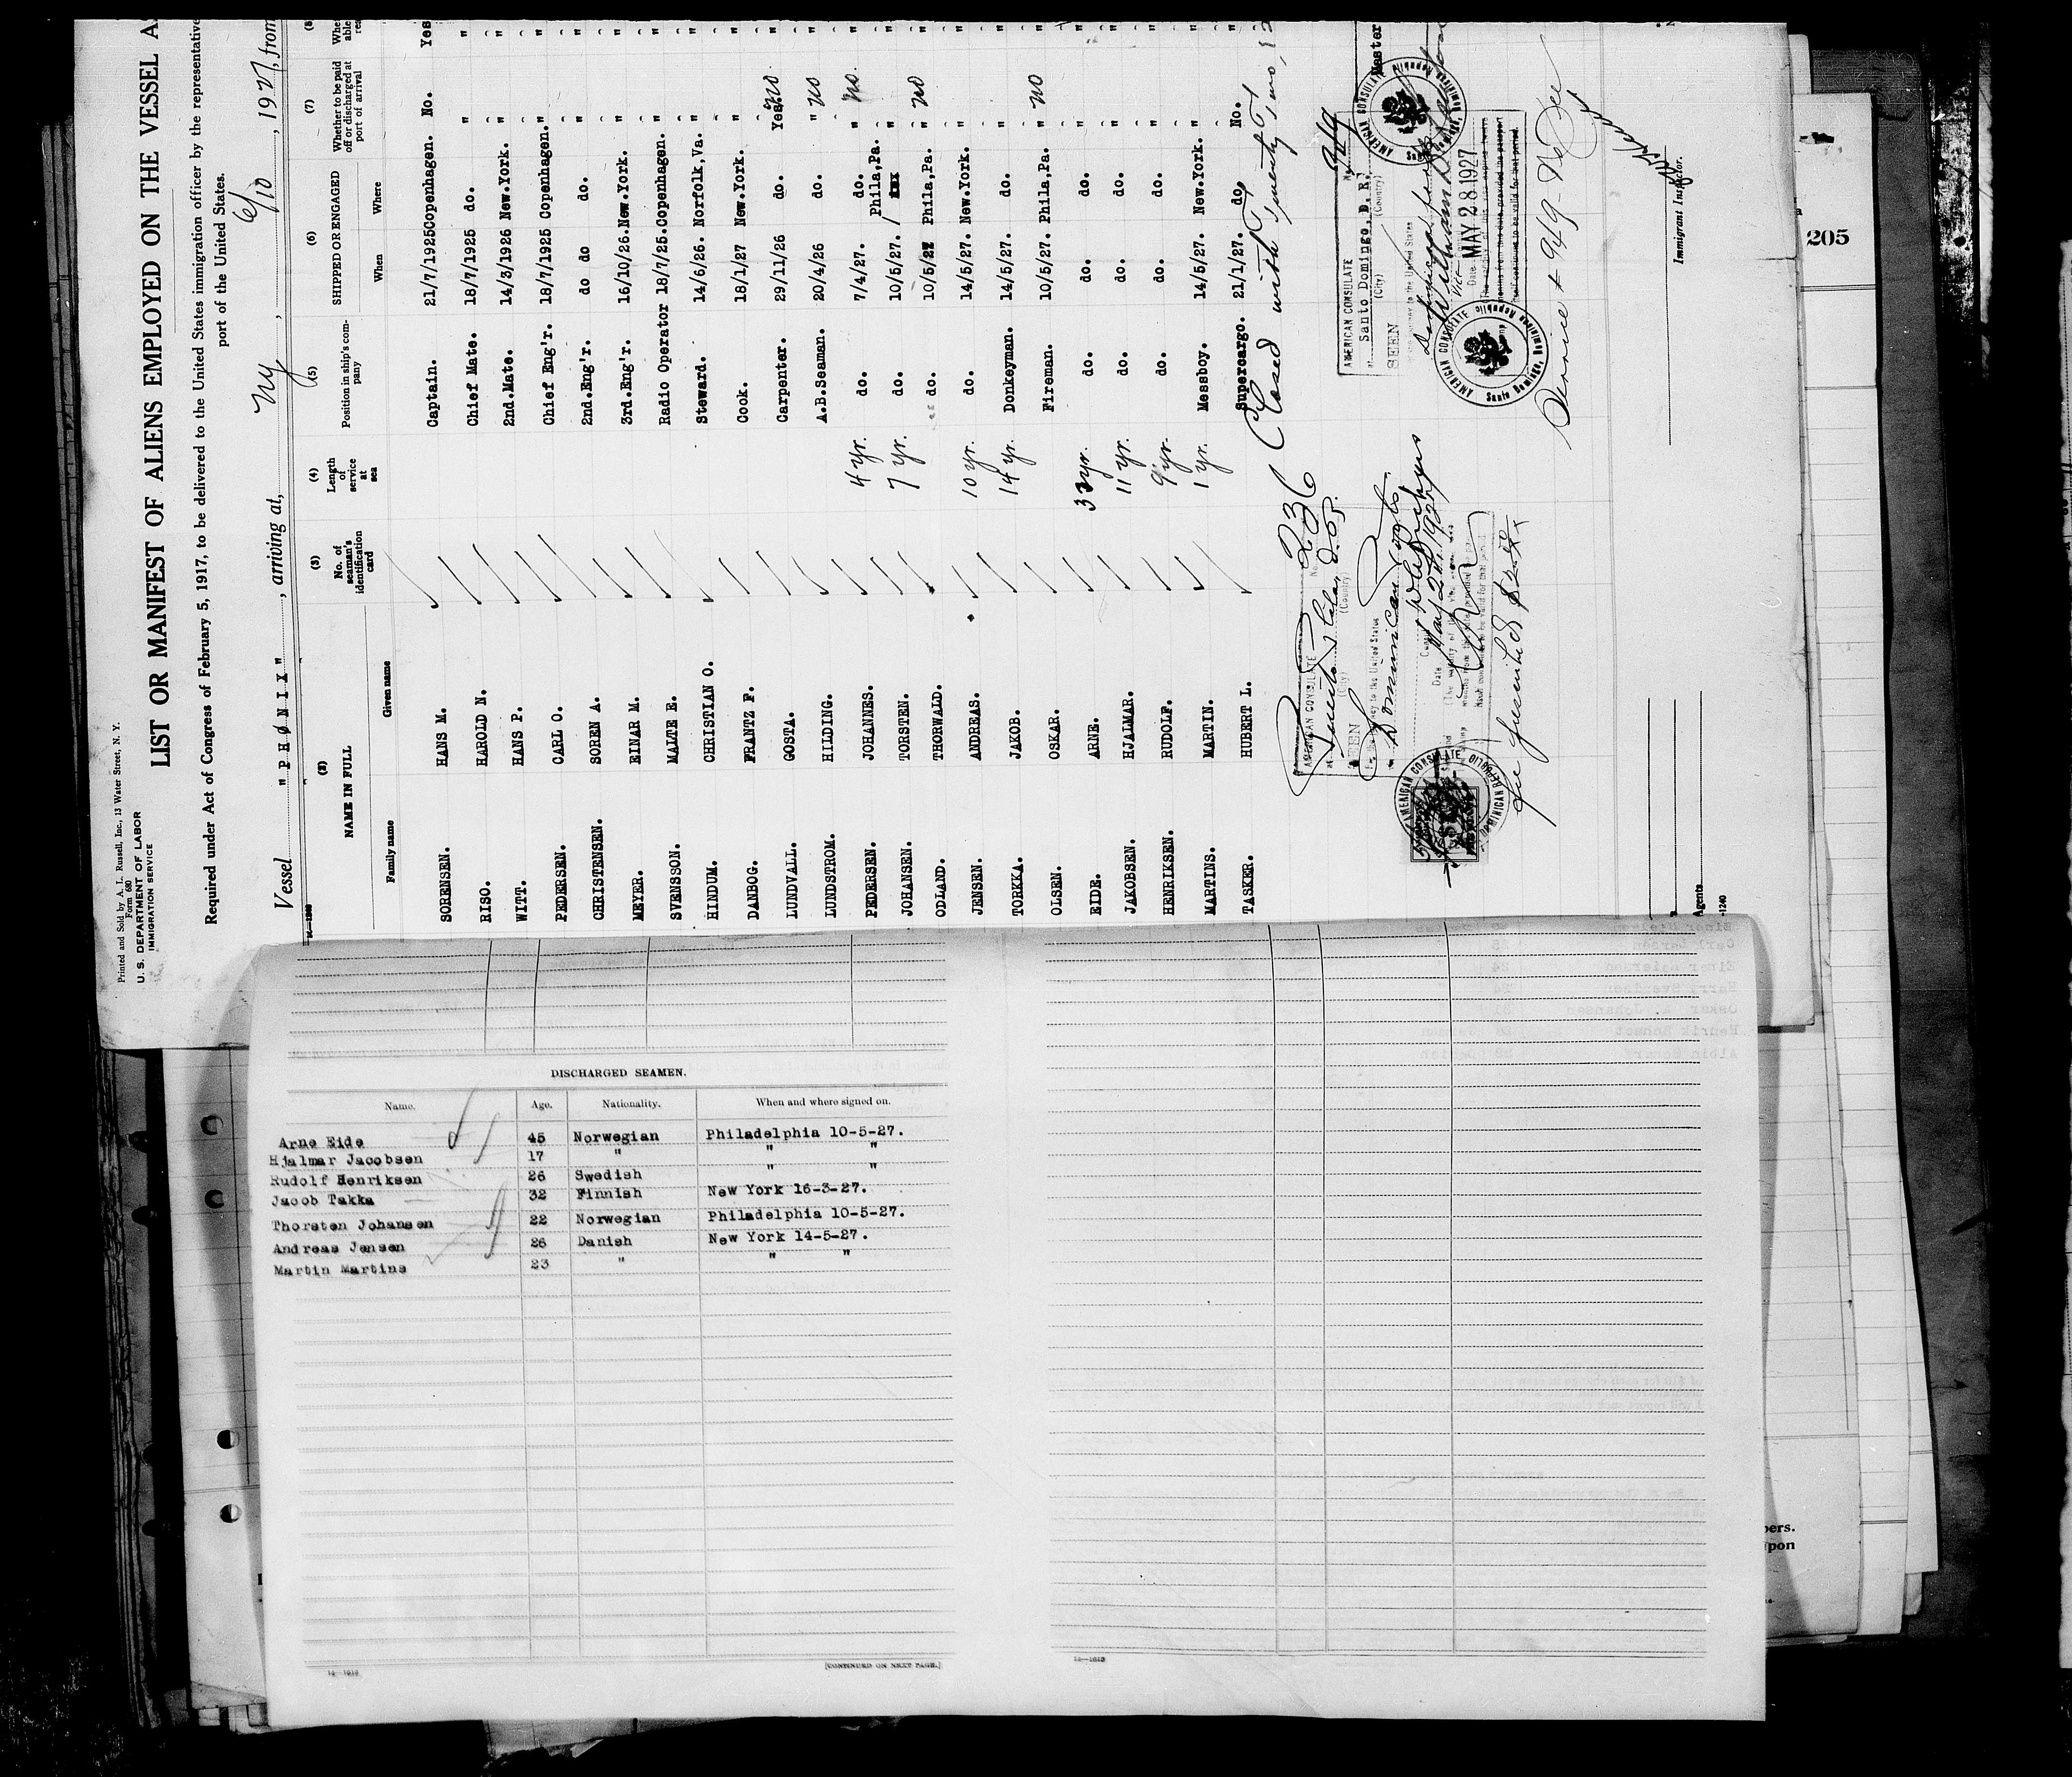 Printed and Sold by A. L. Russell, Inc., 13 Water Street, N. Y.
Form 680
U. S. DEPARTMENT OF LABOR
IMMIGRATION SERVICE
LIST OR MANIFEST OF ALIENS EMPLOYED ON THE VESSEL A
Required under Act of Congress of February 5, 1917, to be delivered to the United States immigration officer by the representative
port of the United States.
Vessel "PHØNIX", arriving at, NY, 6/10, 1927, from
(2) (3) (4) (5) (6) (7)
NAME IN FULL
Family name Given name
No. of seaman's identification card
Length of service at sea
Position in ship's company
SHIPPED OR ENGAGED
When Where
Whether to be paid off or discharged at port of arrival
SORENSEN. HANS M. Captain. 21/7/1925 Copenhagen. No. Yes
RISO. HAROLD N. Chief Mate. 18/7/1925 do. " "
WITT. HANS P. 2nd.Mate. 14/3/1926 New.York. " "
PEDERSEN. CARL O. Chief Eng'r. 18/7/1925 Copenhagen. " "
CHRISTENSEN. SOREN A. 2nd.Eng'r. do do do. " "
MEYER. EINAR M. 3rd.Eng'r. 16/10/26. New.York. " "
SVENSSON. MALTE E. Radio Operator 18/7/25. Copenhagen. " "
HINDUM. CHRISTIAN O. Steward. 14/6/26. Norfolk,Va. " "
DANBOG. FRANTZ F. Cook. 18/1/27 New.York. " "
LUNDVALL. GOSTA. Carpenter. 29/11/26 do. Yes. no "
LUNDSTROM. HILDING. A.B.Seaman. 20/4/26 do. " no "
PEDERSEN. JOHANNES. 4 yr. do. 7/4/27. do. " no. "
JOHANSEN. TORSTEN. 7 yr. do. 10/5/27. Phila,Pa. " "
ODLAND. THORWALD. do. 10/5/27 Phila,Pa. " no "
JENSEN. ANDREAS. 10 yr. do. 14/5/27. New.York. " "
TORKKA. JAKOB. 14 yr. Donkeyman. 14/5/27. do. " "
OLSEN. OSKAR. Fireman. 10/5/27. Phila,Pa. " no "
EIDE. ARNE. 3 yr. do. do. do. " "
JAKOBSEN. HJALMAR. 11 yr. do. do. do. " "
HENRIKSEN. RUDOLF. 9 yr. do. do. do. " "
MARTINS. MARTIN. 1 yr. Messboy. 14/5/27. New.York. " "
TASKER. HUBERT L. Supercargo. 21/1/27. do. No. "
Closed with Twenty Two,
AMERICAN CONSULATE No. 236
at Puerto Plata, D.R.
(City) (Country)
SEEN
Dominican
Date May 24 1927
AMERICAN CONSULATE
DOMINICAN REPUBLIC
AMERICAN CONSULATE No. 949
at Santo Domingo, D. R.
(City) (Country)
SEEN
Date MAY 28 1927
AMERICAN CONSULATE
Santo Domingo, Dominican Republic
Service # 949 - No Fee
Master
Immigrant Inspector.
Agents
-1240
205
DISCHARGED SEAMEN.
Name. Age. Nationality. When and where signed on.
Arne Eide 45 Norwegian Philadelphia 10-5-27.
Hjalmar Jacobsen 17 " " "
Rudolf Henriksen 26 Swedish " "
Jacob Takka 32 Finnish New York 16-3-27.
Thorsten Johansen 22 Norwegian Philadelphia 10-5-27.
Andreas Jensen 26 Danish New York 14-5-27.
Martin Martins 23 " " "
[CONTINUED ON NEXT PAGE.]